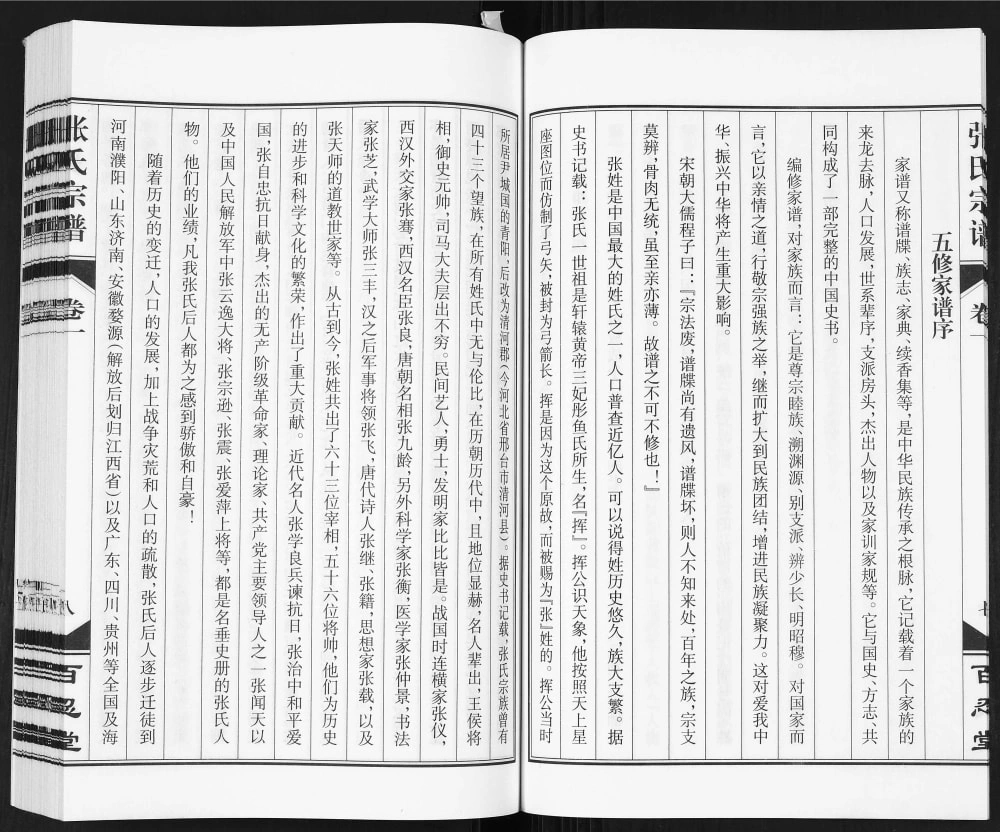 张氏宗谱 卷一
七
百忍堂
五修家谱序
家谱又称谱牒、族志、家典、续香集等，是中华民族传承之根脉，它记载着一个家族的
来龙去脉，人口发展，世系辈序，支派房头，杰出人物以及家训家规等。它与国史、方志、共
同构成了一部完整的中国史书。
编修家谱，对家族而言：它是尊宗睦族、溯渊源、别支派、辨少长、明昭穆。对国家而
言，它以亲情之道，行敬宗强族之举，继而扩大到民族团结，增进民族凝聚力。这对爱我中
华、振兴中华将产生重大影响。
宋朝大儒程子曰：『宗法废，谱牒尚有遗风，谱牒坏，则人不知来处，百年之族，宗支
莫辨，骨肉无统，虽至亲亦薄。故谱之不可不修也！』
张姓是中国最大的姓氏之一，人口普查近亿人。可以说得姓历史悠久，族大支繁。据
史书记载：张氏一世祖是轩辕黄帝三妃彤鱼氏所生，名『挥』。挥公识天象，他按照天上星
座图位而仿制了弓矢，被封为弓箭长。挥是因为这个原故，而被赐为『张』姓的。挥公当时
所居尹城国的青阳，后改为清河郡（今河北省邢台市清河县）。据史书记载，张氏宗族曾有
四十三个望族，在所有姓氏中无与伦比，在历朝历代中，且地位显赫，名人辈出，王侯将
相，御史元帅，司马大夫层出不穷。民间艺人，勇士，发明家比比皆是。战国时连横家张仪，
西汉外交家张骞，西汉名臣张良，唐朝名相张九龄，另外科学家张衡，医学家张仲景，书法
家张芝，武学大师张三丰，汉之后军事将领张飞，唐代诗人张继、张籍，思想家张载，以及
张天师的道教世家等。从古到今，张姓共出了六十三位宰相，五十六位将帅，他们为历史
的进步和科学文化的繁荣，作出了重大贡献。近代名人张学良兵谏抗日，张治中和平爱
国，张自忠抗日献身，杰出的无产阶级革命家、理论家、共产党主要领导人之一张闻天以
及中国人民解放军中张云逸大将、张宗逊、张震、张爱萍上将等，都是名垂史册的张氏人
物。他们的业绩，凡我张氏后人都为之感到骄傲和自豪！
随着历史的变迁，人口的发展，加上战争灾荒和人口的疏散，张氏后人逐步迁徒到
河南濮阳、山东济南、安徽婺源（解放后划归江西省）以及广东、四川、贵州等全国及海
张氏宗谱 卷一
八
百忍堂